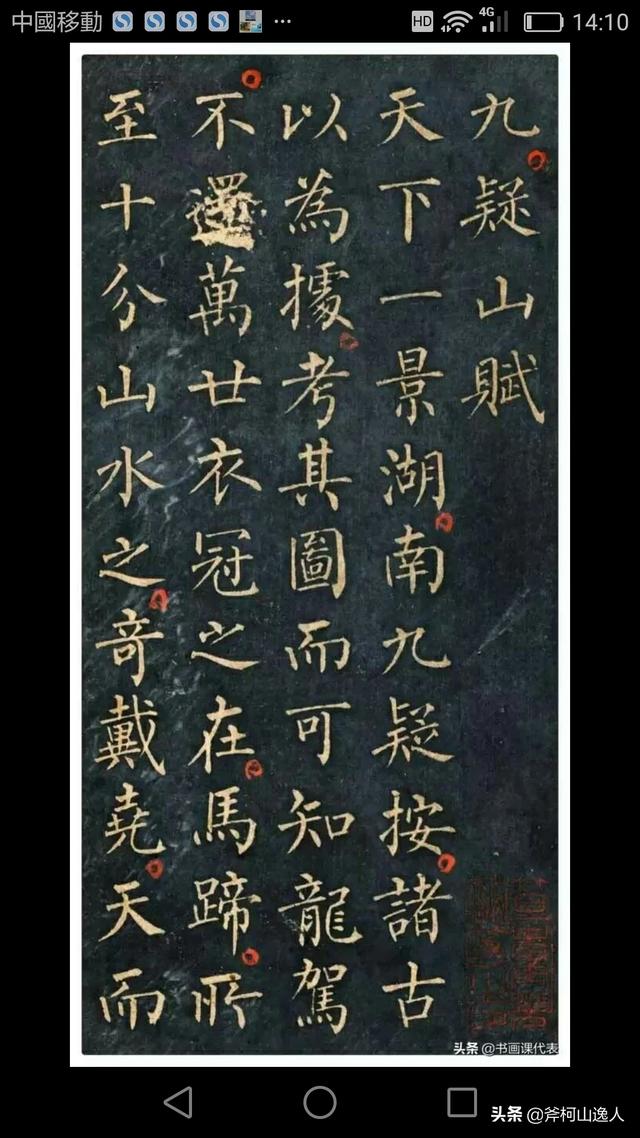 中國移動 HD 4G 14:10
九疑山賦
天下一景湖南九疑按諸古
以為據考其圖而可知龍駕
不還萬廿衣冠之在馬蹄所
至十分山水之奇戴堯天而
头条 @书画课代表
头条 @斧柯山逸人